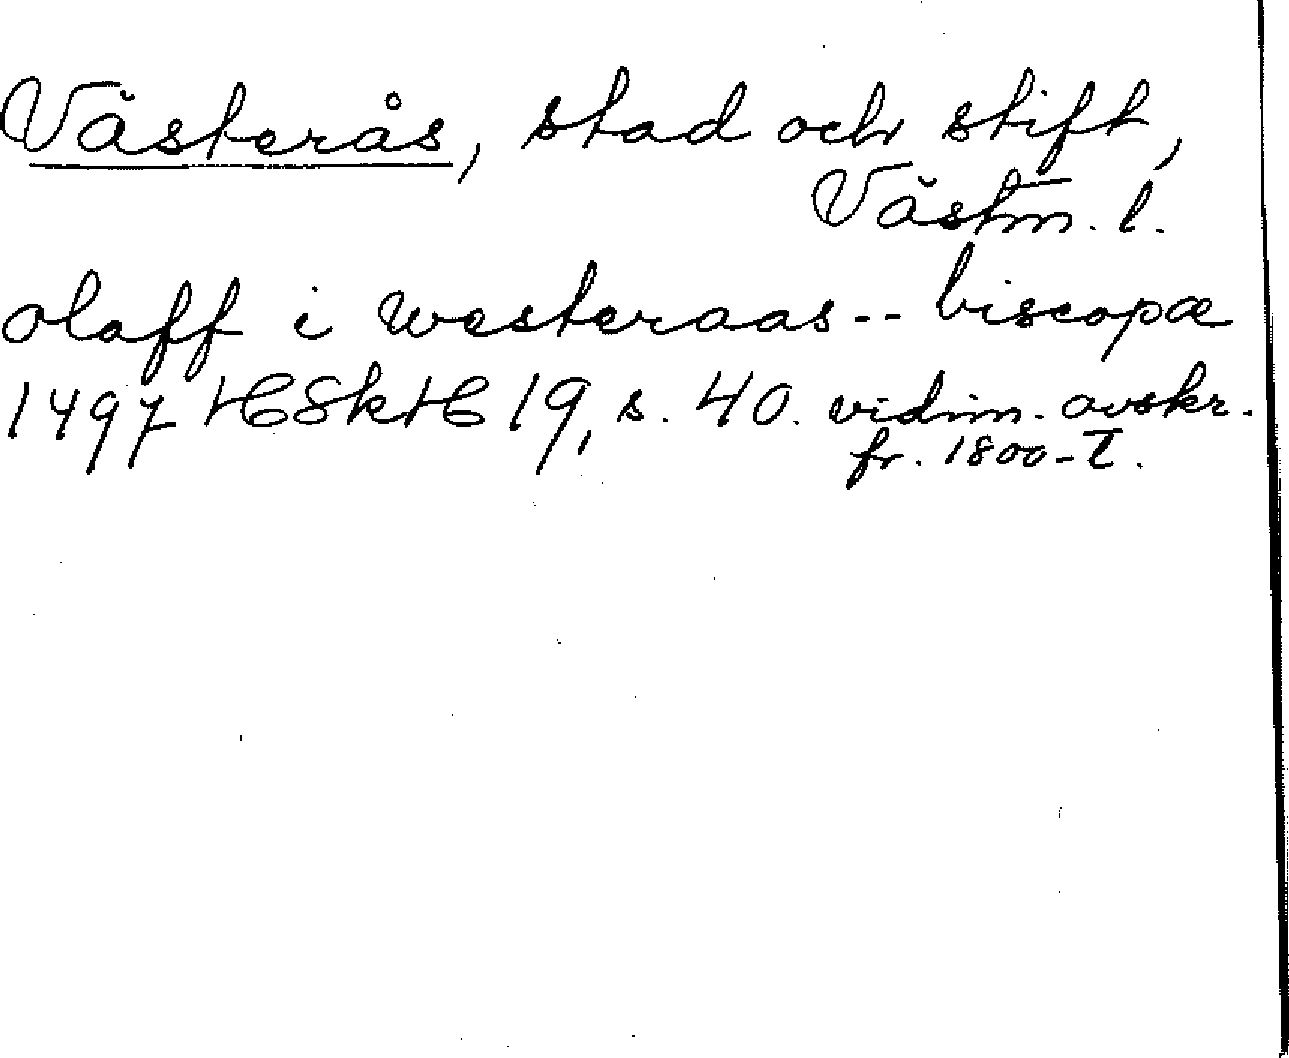 Västerås, stad och stift,
Västm. l.
olaff i westeraas -- biscopæ
1497 HSkH 19, s. 40. vidim. avskr.
fr. 1800-t.